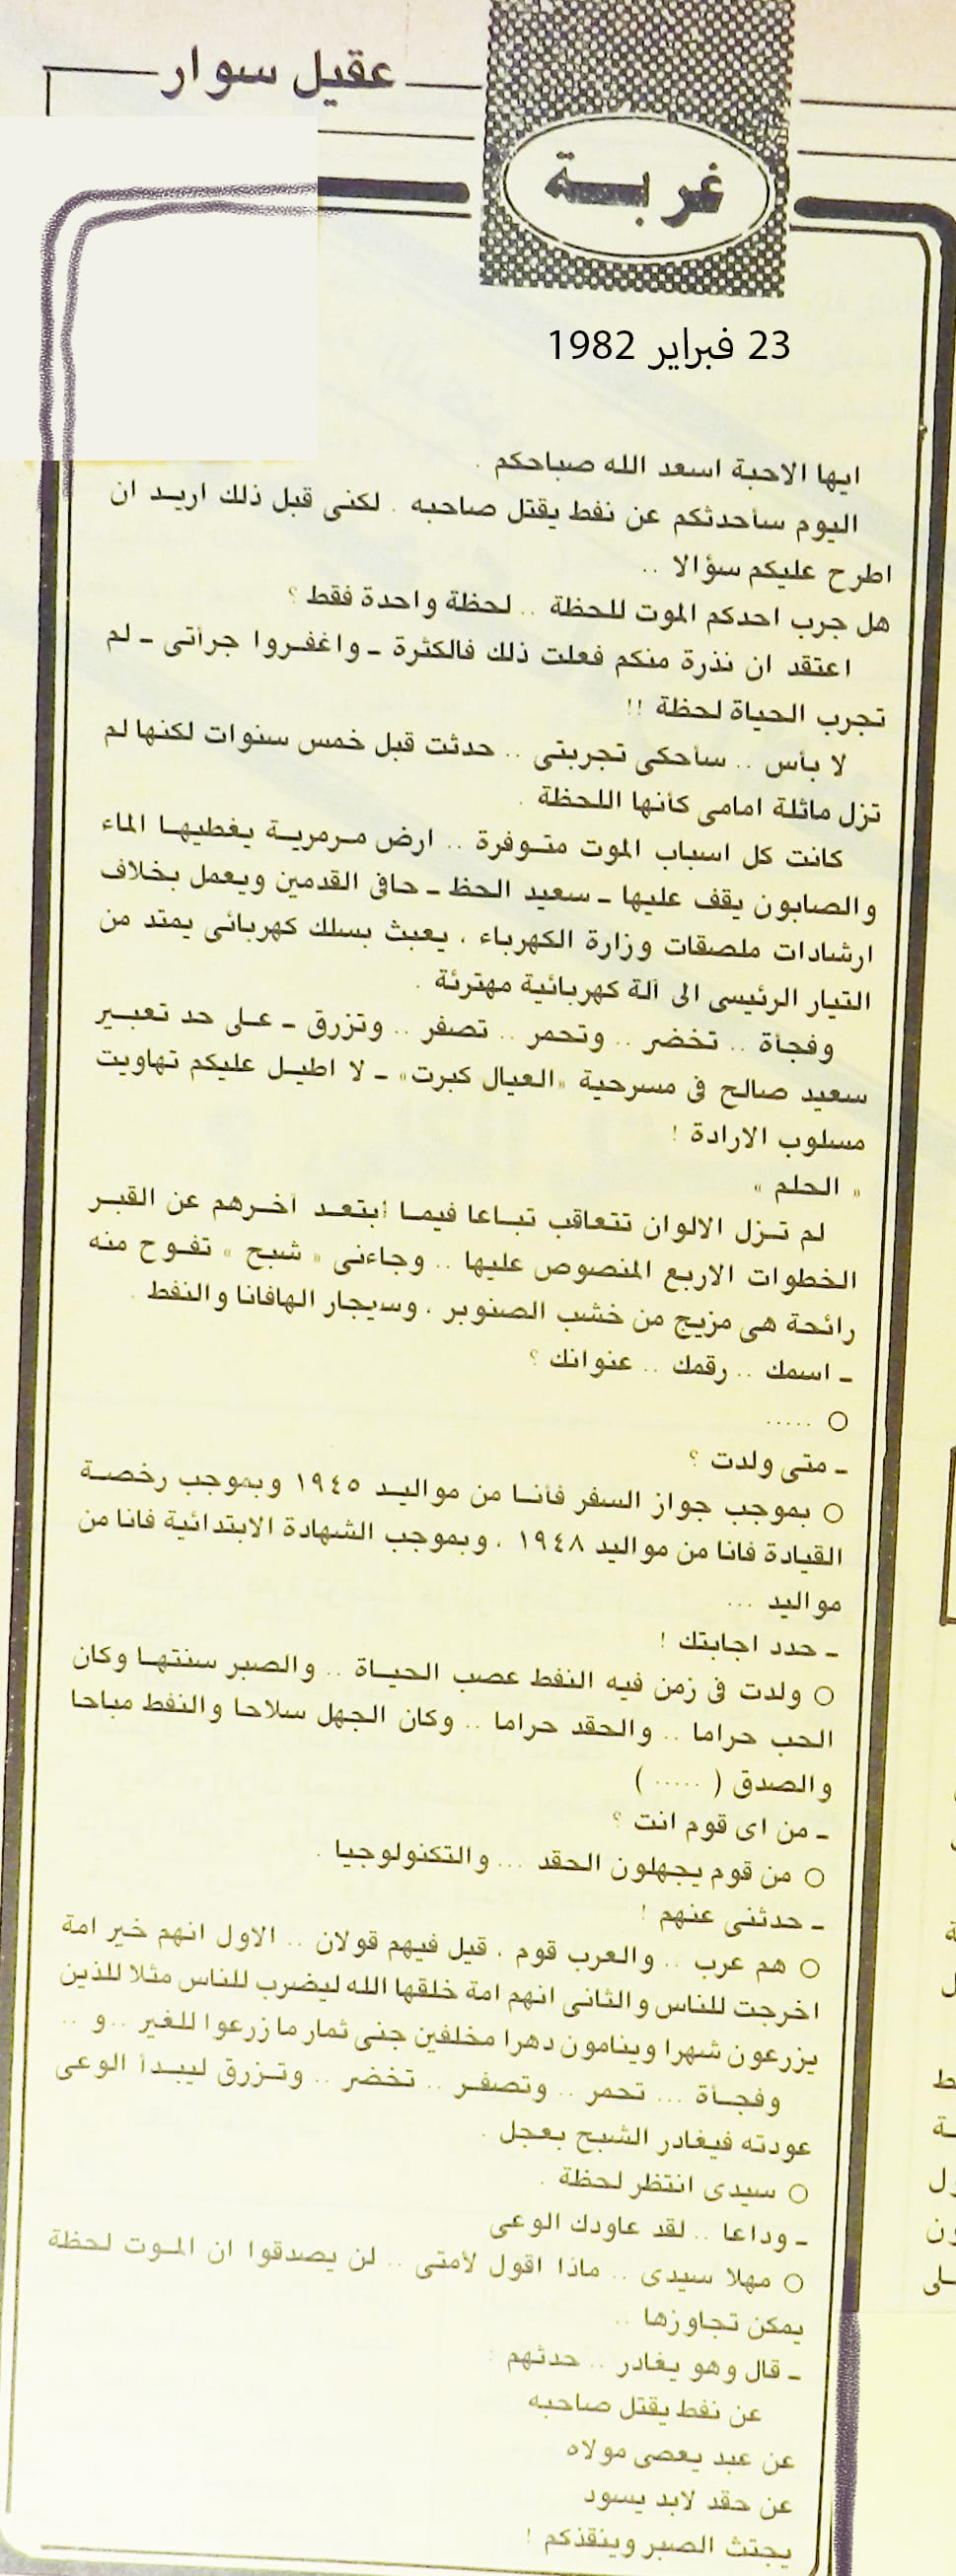 عقيل سوار
غربة
23 فبراير 1982
ايها الاحبة اسعد الله صباحكم .
اليوم سأحدثكم عن نفط يقتل صاحبه . لكنى قبل ذلك اريد ان
اطرح عليكم سؤالا ..
هل جرب احدكم الموت للحظة .. لحظة واحدة فقط ؟
اعتقد ان نذرة منكم فعلت ذلك فالكثرة ـ واغفروا جرأتى ـ لم
تجرب الحياة لحظة !!
لا بأس .. سأحكى تجربتى .. حدثت قبل خمس سنوات لكنها لم
تزل ماثلة امامى كأنها اللحظة .
كانت كل اسباب الموت متوفرة .. ارض مرمرية يغطيها الماء
والصابون يقف عليها ـ سعيد الحظ ـ حافى القدمين ويعمل بخلاف
ارشادات ملصقات وزارة الكهرباء ، يعبث بسلك كهربائى يمتد من
التيار الرئيسى الى آلة كهربائية مهترئة .
وفجأة .. تخضر .. وتحمر .. تصفر .. وتزرق ـ على حد تعبير
سعيد صالح فى مسرحية «العيال كبرت» ـ لا اطيل عليكم تهاويت
مسلوب الارادة !
« الحلم »
لم تزل الالوان تتعاقب تباعا فيما أبتعد أخرهم عن القبر
الخطوات الاربع المنصوص عليها .. وجاءنى « شبح » تفوح منه
رائحة هى مزيج من خشب الصنوبر ، وسيجار الهافانا والنفط .
ـ اسمك .. رقمك .. عنوانك ؟
○ .....
ـ متى ولدت ؟
○ بموجب جواز السفر فأنا من مواليد ١٩٤٥ وبموجب رخصة
القيادة فانا من مواليد ١٩٤٨ ، وبموجب الشهادة الابتدائية فانا من
مواليد ...
ـ حدد اجابتك !
○ ولدت فى زمن فيه النفط عصب الحياة .. والصبر سنتها وكان
الحب حراما .. والحقد حراما .. وكان الجهل سلاحا والنفط مباحا
والصدق ( ..... )
ـ من اى قوم انت ؟
○ من قوم يجهلون الحقد ... والتكنولوجيا .
ـ حدثنى عنهم !
○ هم عرب .. والعرب قوم ، قيل فيهم قولان .. الاول انهم خير امة
اخرجت للناس والثانى انهم امة خلقها الله ليضرب للناس مثلا للذين
يزرعون شهرا وينامون دهرا مخلفين جنى ثمار ما زرعوا للغير .. و ..
وفجأة ... تحمر .. وتصفر .. تخضر .. وتزرق ليبدأ الوعى
عودته فيغادر الشبح بعجل .
○ سيدى انتظر لحظة .
ـ وداعا .. لقد عاودك الوعى
○ مهلا سيدى .. ماذا اقول لأمتى .. لن يصدقوا ان الموت لحظة
يمكن تجاوزها ..
ـ قال وهو يغادر .. حدثهم :
عن نفط يقتل صاحبه
عن عبد يعصى مولاه
عن حقد لابد يسود
يجتث الصبر وينقذكم !